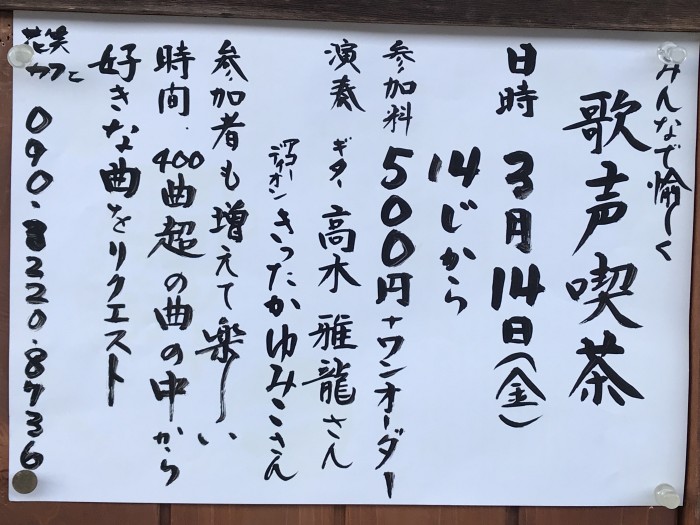 みんなで愉しく
歌声喫茶
日時 3月14日(金)
14じから
参加料 500円+ワンオーダー
演奏 ギター 高木 雅龍さん
アコーディオン きったかゆみこさん
参加者も増えて楽しい
時間・400曲超の曲の中から
好きな曲をリクエスト
花笑カフェ 090・8220・8736